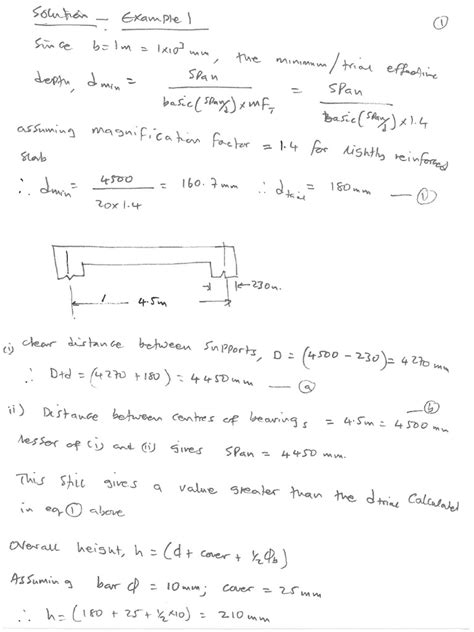 Solution - Example 1
①
Since b = 1m = 1x10³ mm, the minimum/trial effective
depth, dmin = Span / basic(span/d) x MFT = Span / basic(span/d) x 1.4
assuming magnification factor = 1.4 for lightly reinforced
slab
∴ dmin = 4500 / 20x1.4 = 160.7mm ∴ dtrial = 180mm — ①
230m.
4.5m
(i) Clear distance between supports, D = (4500 - 230) = 4270mm
∴ D+d = (4270 + 180) = 4450mm — ⓐ
ii) Distance between centres of bearings = 4.5m = 4500mm — ⓑ
lesser of (i) and (ii) gives span = 4450 mm.
This still gives a value greater than the dtrial calculated
in eq ① above
Overall height, h = (d + cover + ½Φb)
Assuming bar Φ = 10mm; cover = 25mm
∴ h = (180 + 25 + ½x10) = 210mm